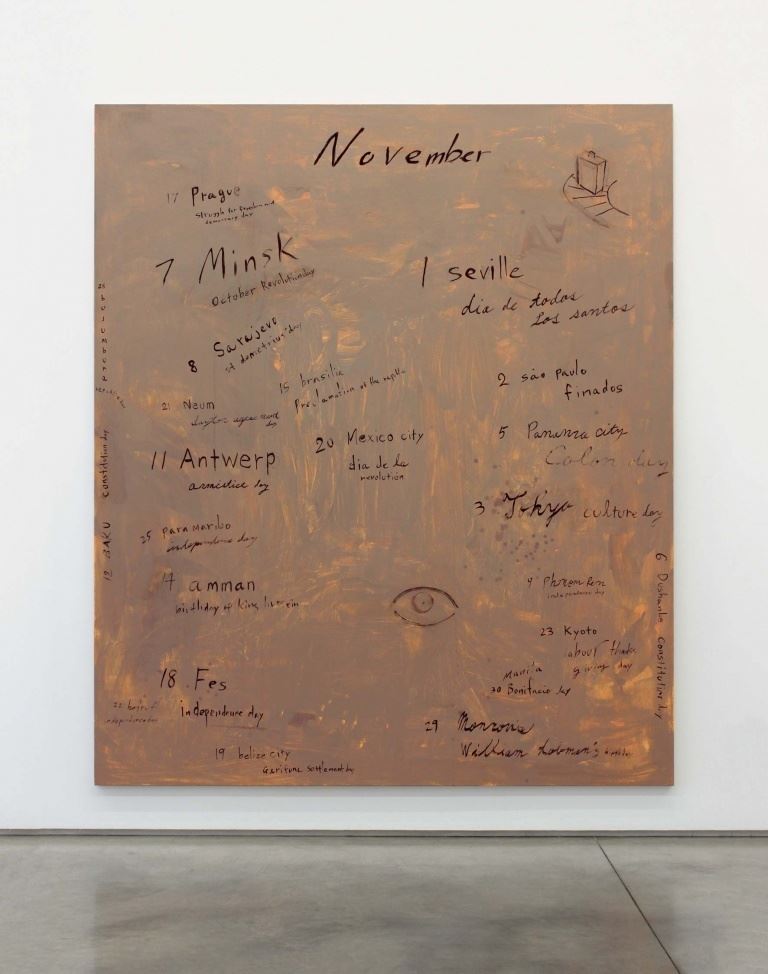 November
17 Prague
struggle for freedom and
democracy day
7 Minsk
October Revolution day
1 seville
dia de todos
Los santos
8 Sarajevo
st domitrius day
15 brasilia
Proclamation of the
2 são Paulo
finados
21 Neum
day
20 Mexico city
dia de la
revolution
5 Panama city
Colon day
11 Antwerp
armistice day
12 BAKU constitution day
3 Tokyo culture day
25 Paramaribo
independence day
14 amman
birthday of king
9
independence day
6 Dushanbe constitution day
23 Kyoto
labour thanks
giving day
Manila
30 Bonifacio day
18 Fes
independence day
22 beirut
independence day
29
William
19 belize city
Garifuna settlement day